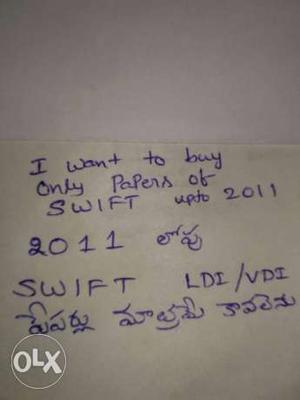 I want to buy
only Papers of
SWIFT upto 2011
2011 లోపు
SWIFT LDI/VDI
పేపర్లు మాత్రమే కావలెను
OLX